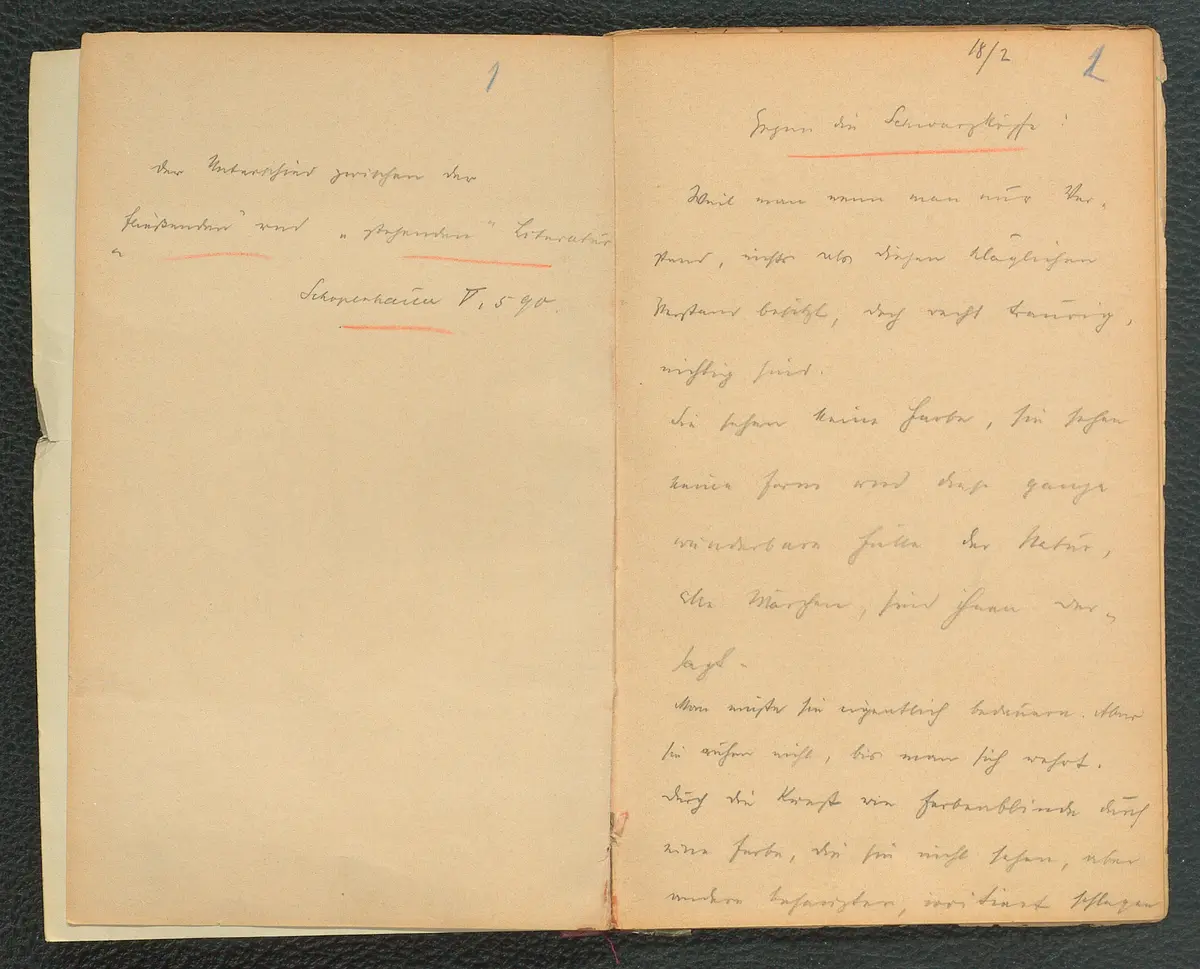 1
Der Unterschied zwischen der
„fließenden" und „stehenden" Literatur
Schopenhauer V, 590.
18/2
2
Gegen die Schwarzköpfe!
Weil man wenn man nur Ver-
stand, nichts als diesen kläglichen
Verstand besitzt, doch recht traurig,
nichtig sind.
Sie sehen keine Farbe, sie sehen
keine Form und diese ganze
wunderbare Fülle der Natur,
Alle Märchen, sind ihnen ver-
sagt.
Man müßte sie eigentlich bedauern. Aber
sie ruhen nicht, bis man sich wehrt.
Durch die Kunst wie Farbenblinde durch
eine Farbe, die sie nicht sehen, aber
andere behaupten, irritiert schlagen